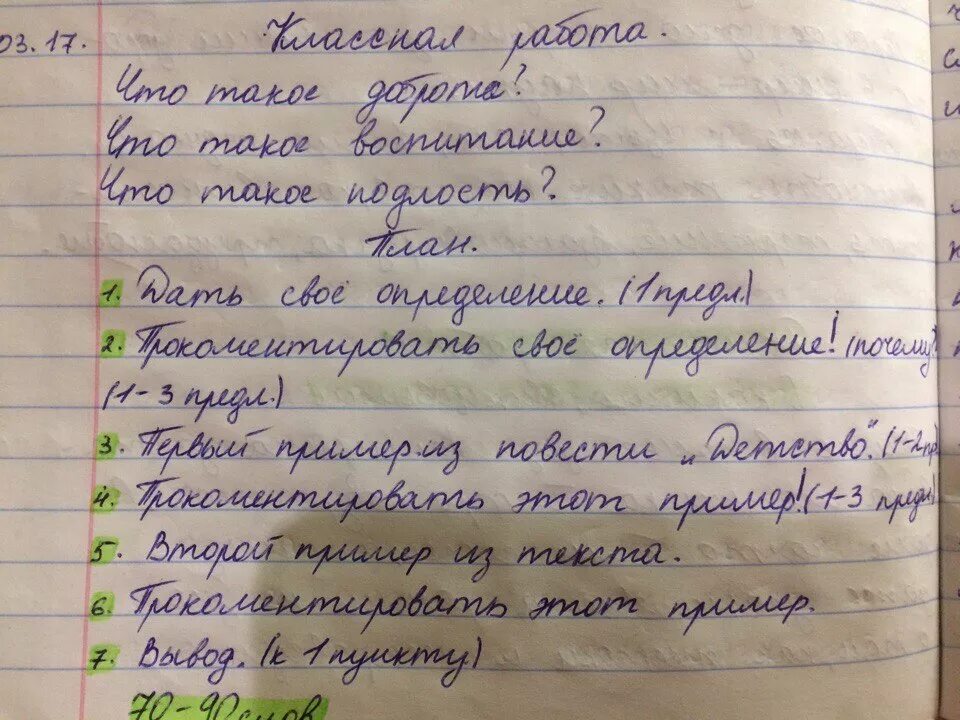 03.17. Классная работа.
Что такое доброта?
Что такое воспитание?
Что такое подлость?
План.
1. Дать своё определение. (1 предл.)
2. Прокоментировать своё определение! (почему?
(1-3 предл.)
3. Первый пример из повести "Детство". (1-2пр
4. Прокоментировать этот пример! (1-3 предл)
5. Второй пример из текста.
6. Прокоментировать этот пример.
7. Вывод. (к 1 пункту)
70-90 слов